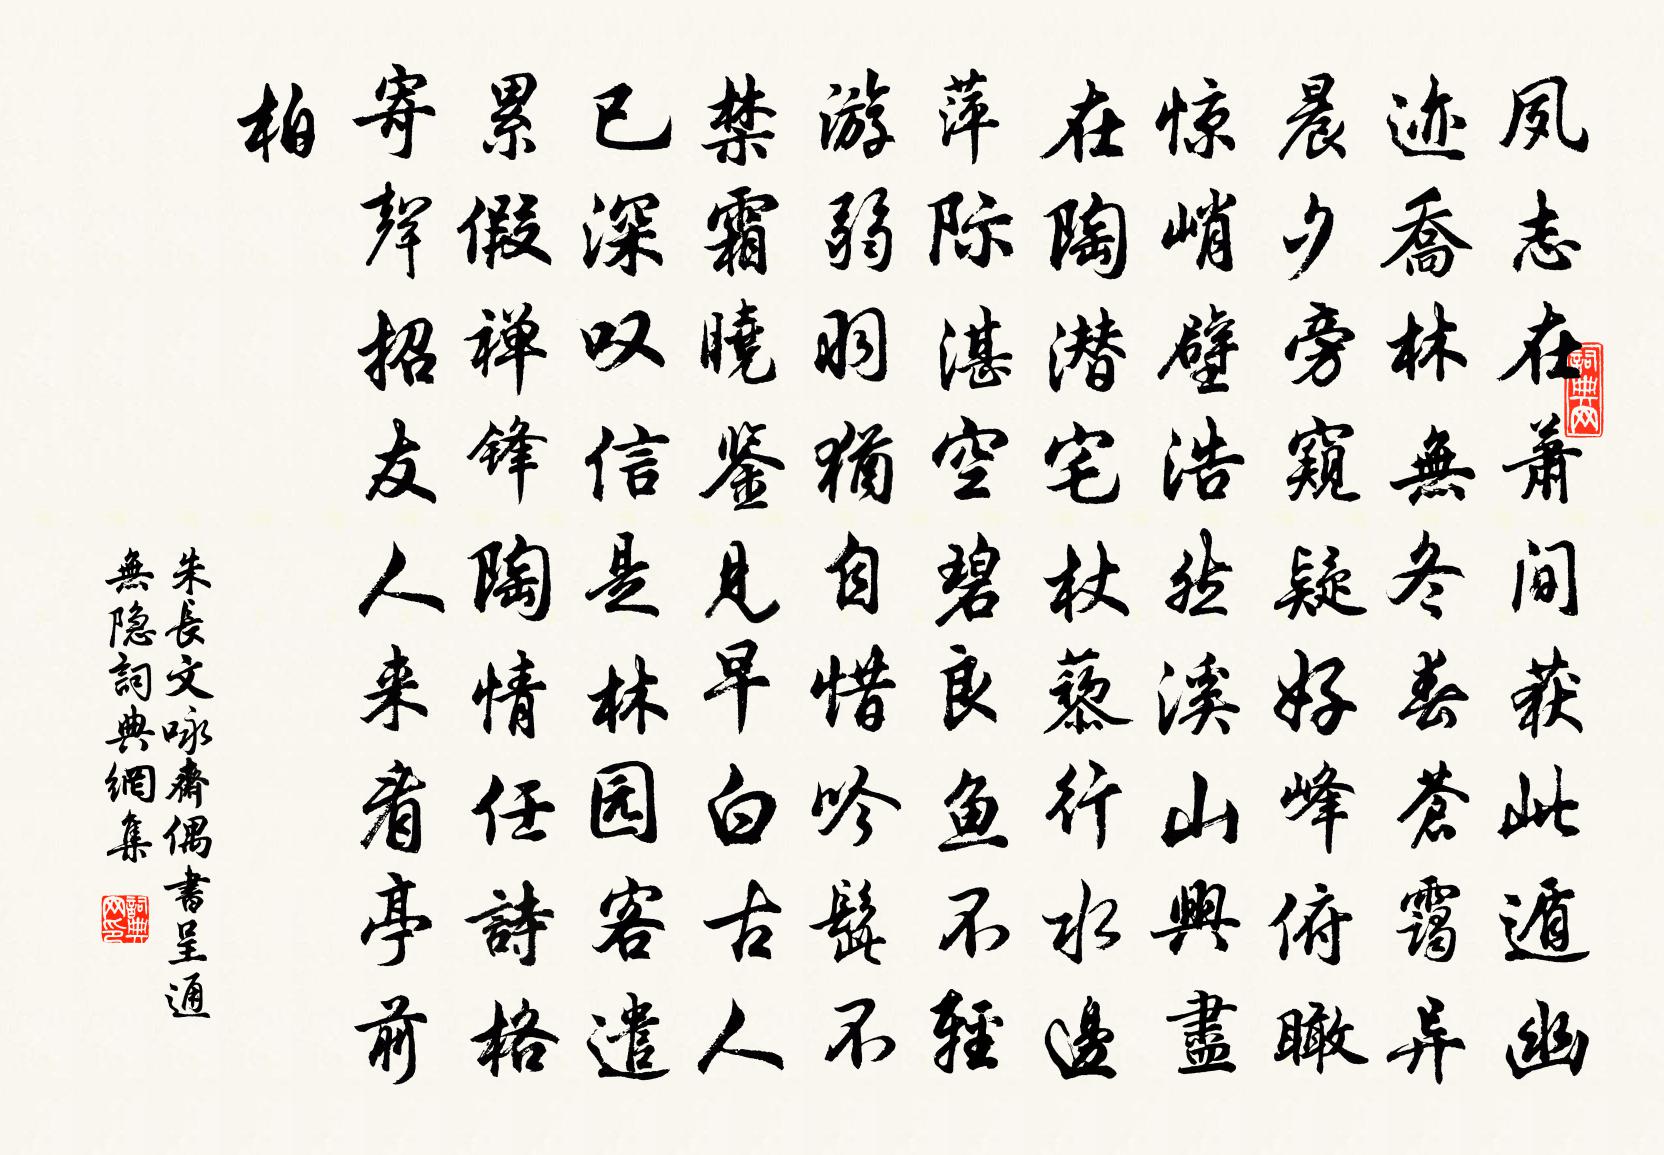 夙志在萧间获此遁幽
迹乔林無冬春苍霭异
晨夕旁窥疑好峰俯瞰
惊峭壁浩然溪山興盡
在陶潜宅杖藜行水边
萍际湛空碧良鱼不轻
游弱羽犹自惜吟髭不
禁霜曉鉴見早白古人
已深叹信是林园客遣
累假禅锋陶情任詩格
寄聲招友人来看亭前
柏
朱長文咏齋偶書呈通
無隐詞典網集
詞典网
詞典网印